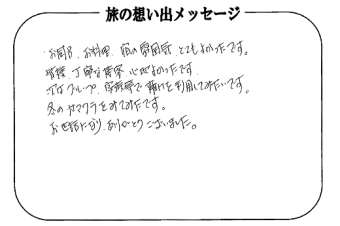 旅の想い出メッセージ
お風呂、お料理、宿の雰囲気とてもよかったです。
丁寧な接客、心地よかったです。
グループ、家族等で 利用してみたいです。
冬のカマクラをみてみたいです。
お世話になり、ありがとうございました。